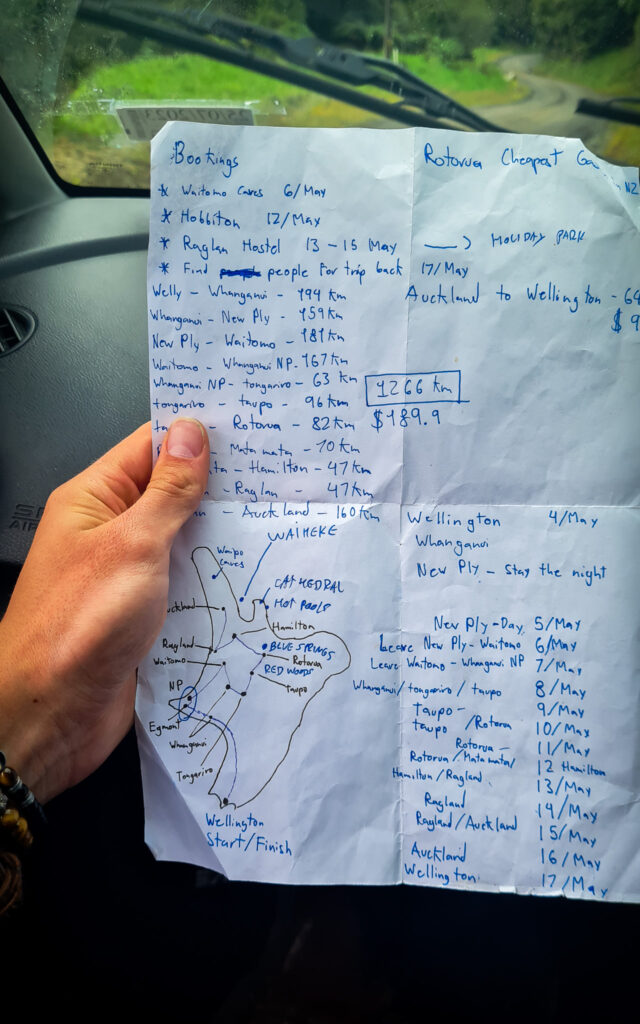 25/07/23
Bookings
* Waitomo Caves 6/May
* Hobbiton 12/May
* Raglan Hostel 13 - 15 May
* Find people for trip back 17/May
Welly - Whanganui - 194 km
Whanganui - New Ply - 159 km
New Ply - Waitomo - 181 km
Waitomo - Whanganui NP - 167 km
Whanganui NP - tongariro - 63 km
tongariro - taupo - 96 km
- Rotorua - 82 km
- Matamata - 70 km
- Hamilton - 47 km
- Raglan - 47 km
- Auckland - 160 km
Rotorua Cheapest
NZ
HOLIDAY PARK
Auckland to Wellington -
1266 km
$189.9
WAIHEKE
Waipo Caves
CATHEDRAL
HOT POOLS
Hamilton
BLUE SPRINGS
Raglan
Rotorua
Waitomo
RED WOODS
Taupo
NP
Egmont
Whanganui
Tongariro
Wellington
Start/Finish
Wellington 4/May
Whanganui
New Ply - Stay the night
New Ply - Day 5/May
Leave New Ply - Waitomo 6/May
Leave Waitomo - Whanganui NP 7/May
Whanganui/tongariro/taupo 8/May
Taupo - 9/May
taupo/Rotorua 10/May
Rotorua - 11/May
Rotorua/Matamata/ 12 Hamilton
Hamilton/Ragland 13/May
Ragland 14/May
Ragland/Auckland 15/May
Auckland 16/May
Wellington 17/May